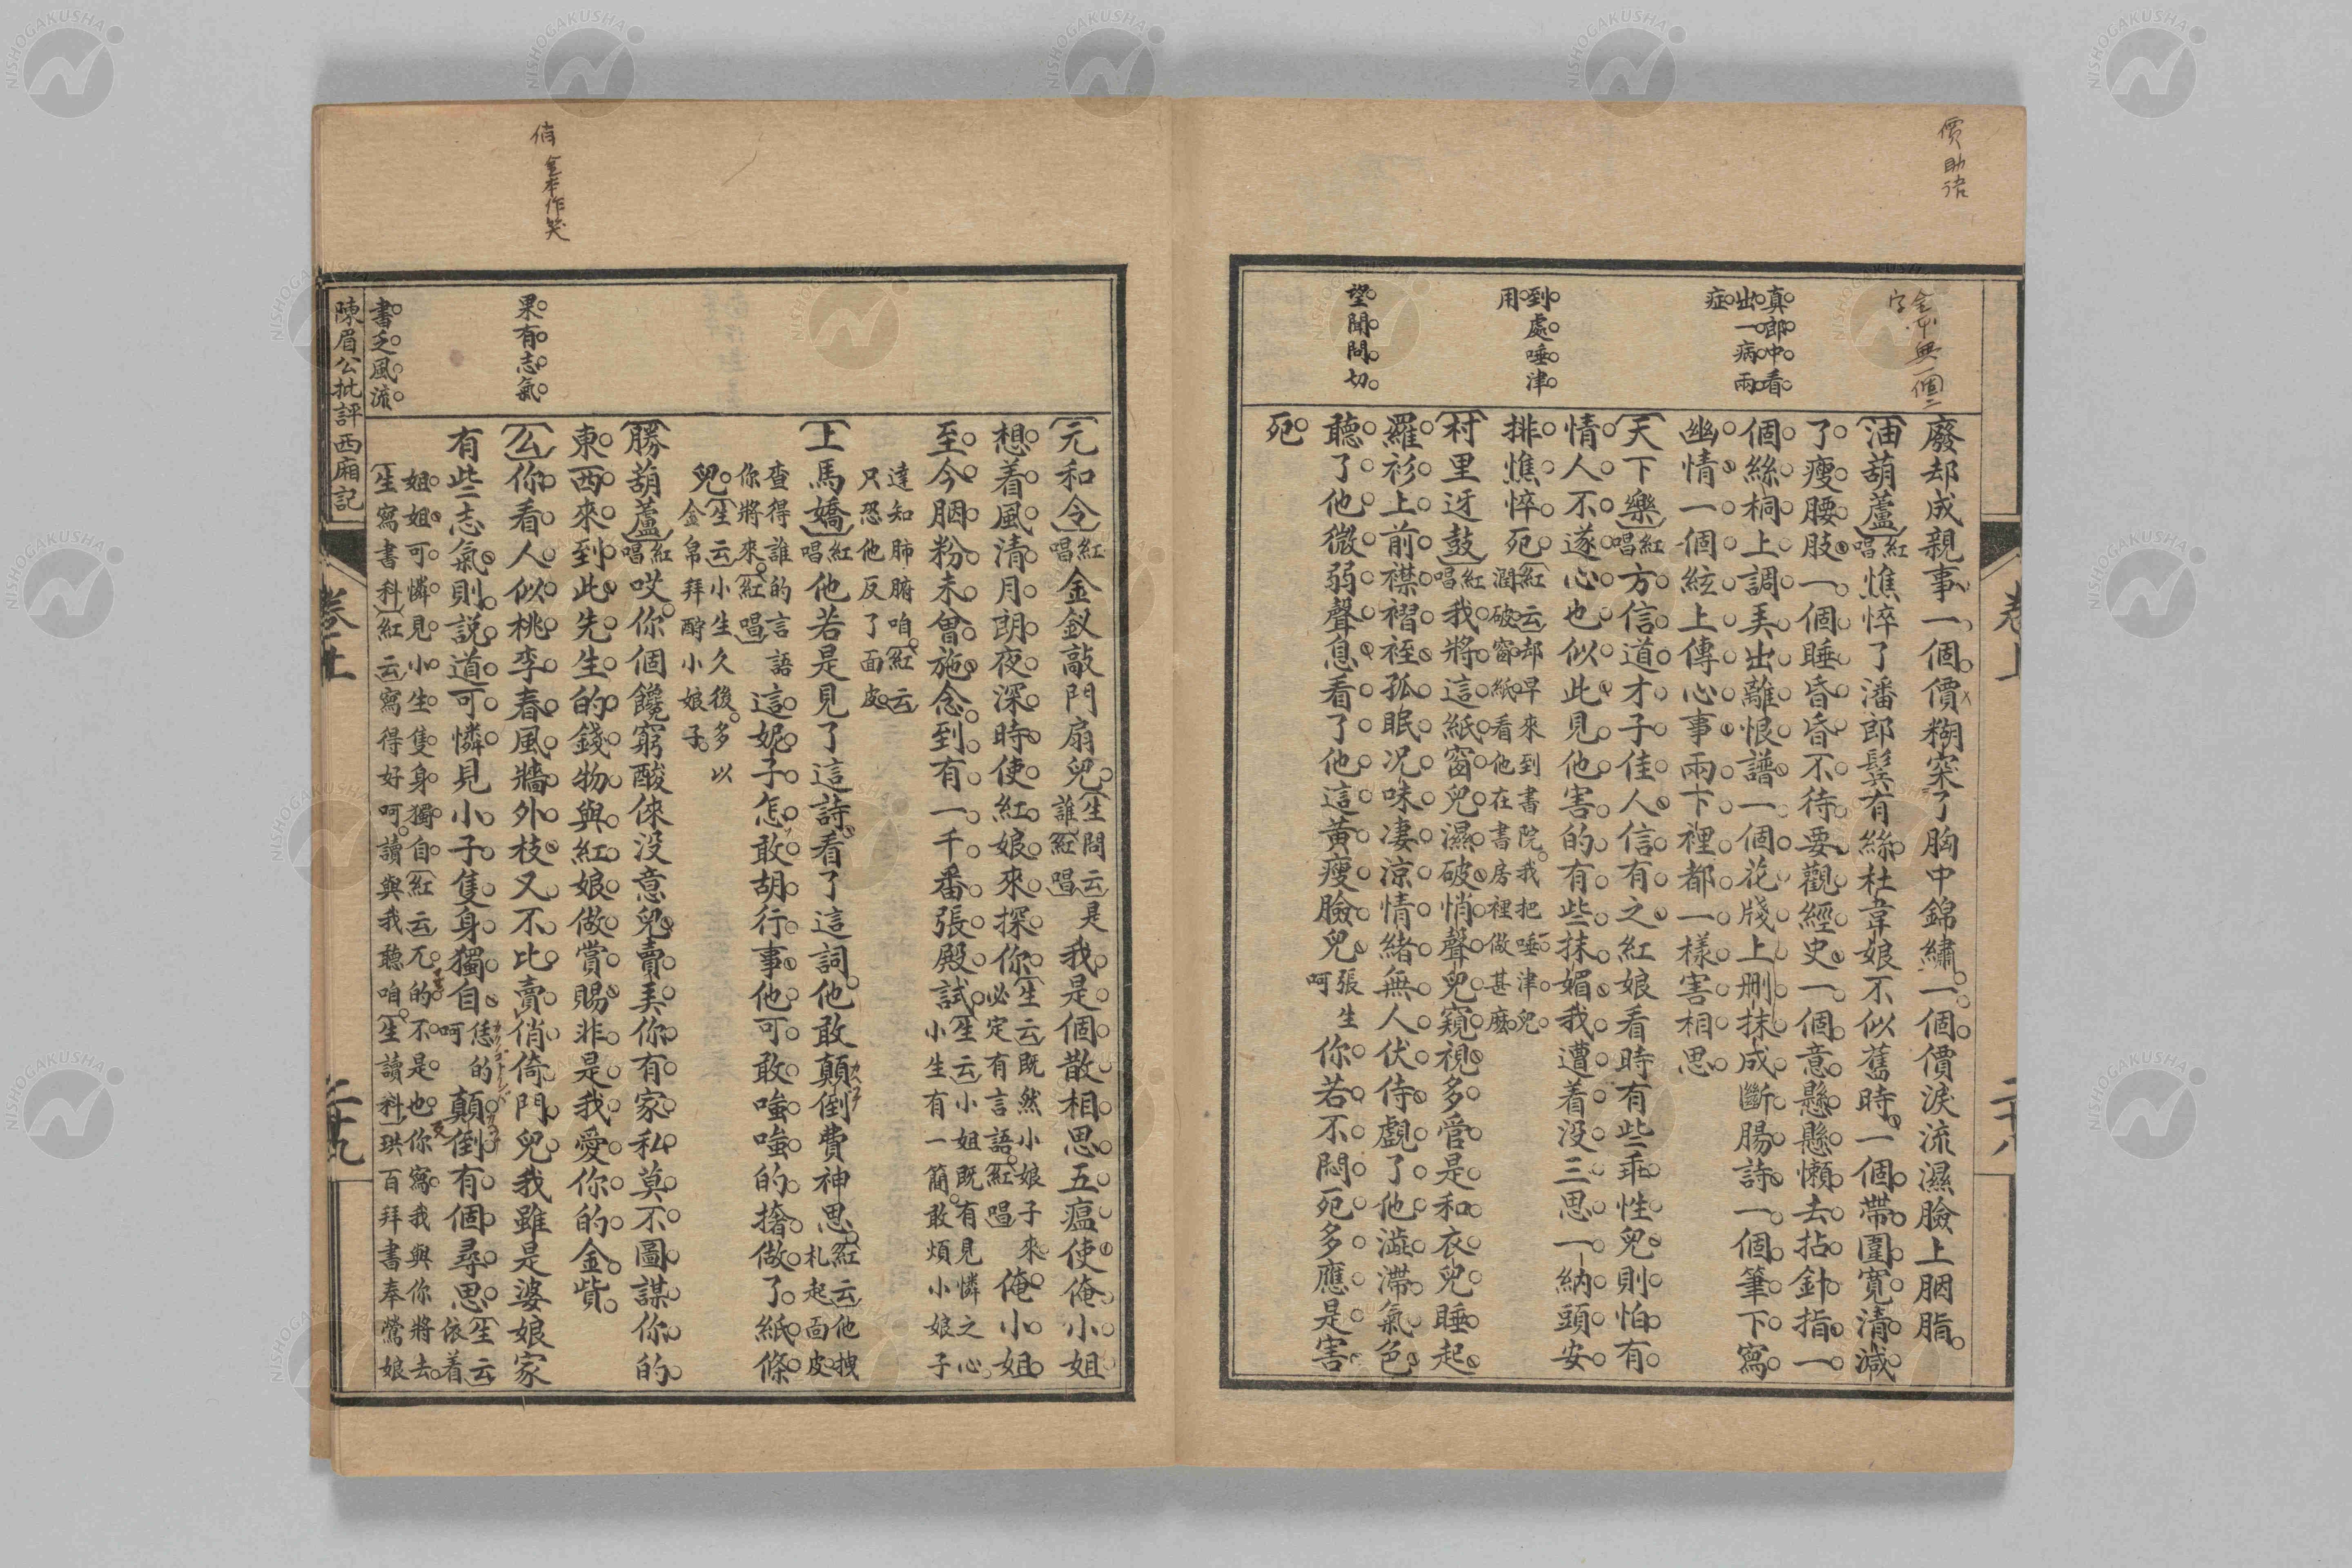 價助語
金本無一個二
字
真郎中看
出一病兩
症
到處唾津
用
望聞問切
卷上
二十八
廢却成親事一個價糊突了胸中錦繡一個價淚流濕臉上胭脂
油葫蘆 紅唱 憔悴了潘郎鬂有絲杜韋娘不似舊時一個帶圍寛清減
了瘦腰肢一個睡昏昏不待要觀經史一個意懸懸懶去拈針指一
個絲桐上調弄出離恨譜一個花牋上刪抹成斷腸詩一個筆下寫
幽情一個絃上傳心事兩下裡都一樣害相思
天下樂 紅唱 方信道才子佳人信有之紅娘看時有些乖性兒則怕有
情人不遂心也似此見他害的有些抹媚我遭着没三思一納頭安
排憔悴死 紅云却早來到書院我把唾津兒
潤破窗紙看他在書房裡做甚麽
村里迓鼓 紅唱 我將這紙窗兒濕破悄聲兒窺視多管是和衣兒睡起
羅衫上前襟褶祬孤眠况味凄凉情緒無人伏侍覷了他澁滯氣色
聽了他微弱聲息看了他這黄瘦臉兒 張生呵 你若不悶死多應是害
死
俏 金本作笑
果有志氣
書乏風流
元和令 紅唱 金釵敲門扇兒 生問云是誰紅唱 我是個散相思五瘟使俺小姐
想着風清月朗夜深時使紅娘來探你 生云既然小娘子來
必定有言語紅唱 俺小姐
至今胭粉未曾施念到有一千番張殿試 生云小姐既有見憐之心
小生有一簡敢煩小娘子
達知肺腑咱紅云
只恐他反了面皮
上馬嬌 紅唱 他若是見了這詩看了這詞他敢顛倒費神思 紅云他拽
札起面皮
查得誰的言語
你將來紅唱 這妮子怎敢胡行事他可敢嗤嗤的搇做了紙條
兒 生云小生久後多以
金帛拜酧小娘子
勝葫蘆 紅唱 哎你個饞窮酸倈没意兒賣弄你有家私莫不圖謀你的
東西來到此先生的錢物與紅娘做賞賜非是我愛你的金貲
么 你看人似桃李春風牆外枝又不比賣俏倚門兒我雖是婆娘家
有些志氣則説道可憐見小子隻身獨自 恁的呵 顛倒有個尋思 生云
依着
姐姐可憐見小生隻身獨自紅云兀的不是也你寫我與你將去
生寫書科紅云寫得好呵讀與我聽咱生讀科珙百拜書奉鶯娘
陳眉公批評西廂記
卷上
二十九